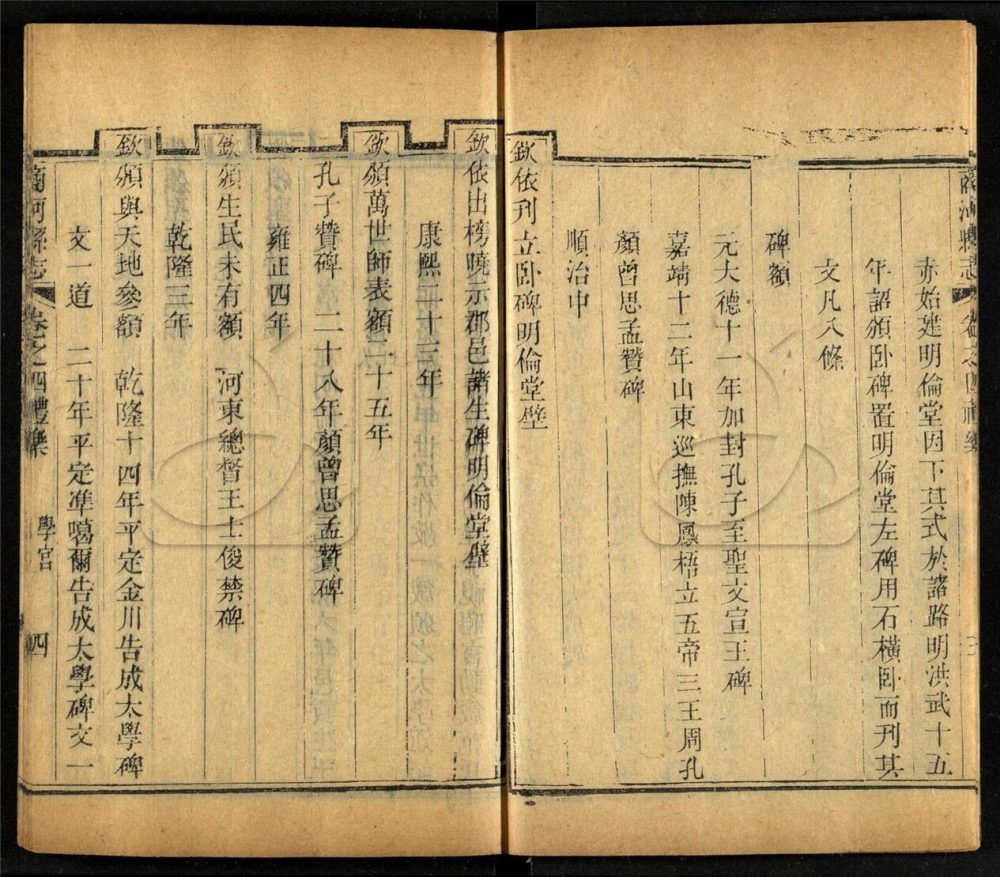 商河縣志 卷之四禮樂
亦始建明倫堂因下其式於諸路明洪武十五
年詔頒卧碑置明倫堂左碑用石橫卧而刊其
文凡八條
碑額
元大德十一年加封孔子至聖文宣王碑
嘉靖十二年山東巡撫陳鳳梧立五帝三王周孔
顏曾思孟贊碑
順治中
欽依刊立卧碑明倫堂壁
欽依出榜曉示郡邑諸生碑明倫堂壁
康熙二十三年
欽頒萬世師表額二十五年
孔子贊碑二十八年顏曾思孟贊碑
雍正四年
欽頒生民未有額 河東總督王士俊禁碑
乾隆三年
欽頒與天地參額 乾隆十四年平定金川告成太學碑
文一道 二十年平定準噶爾告成太學碑文一
商河縣志 卷之四禮樂 學宮 四